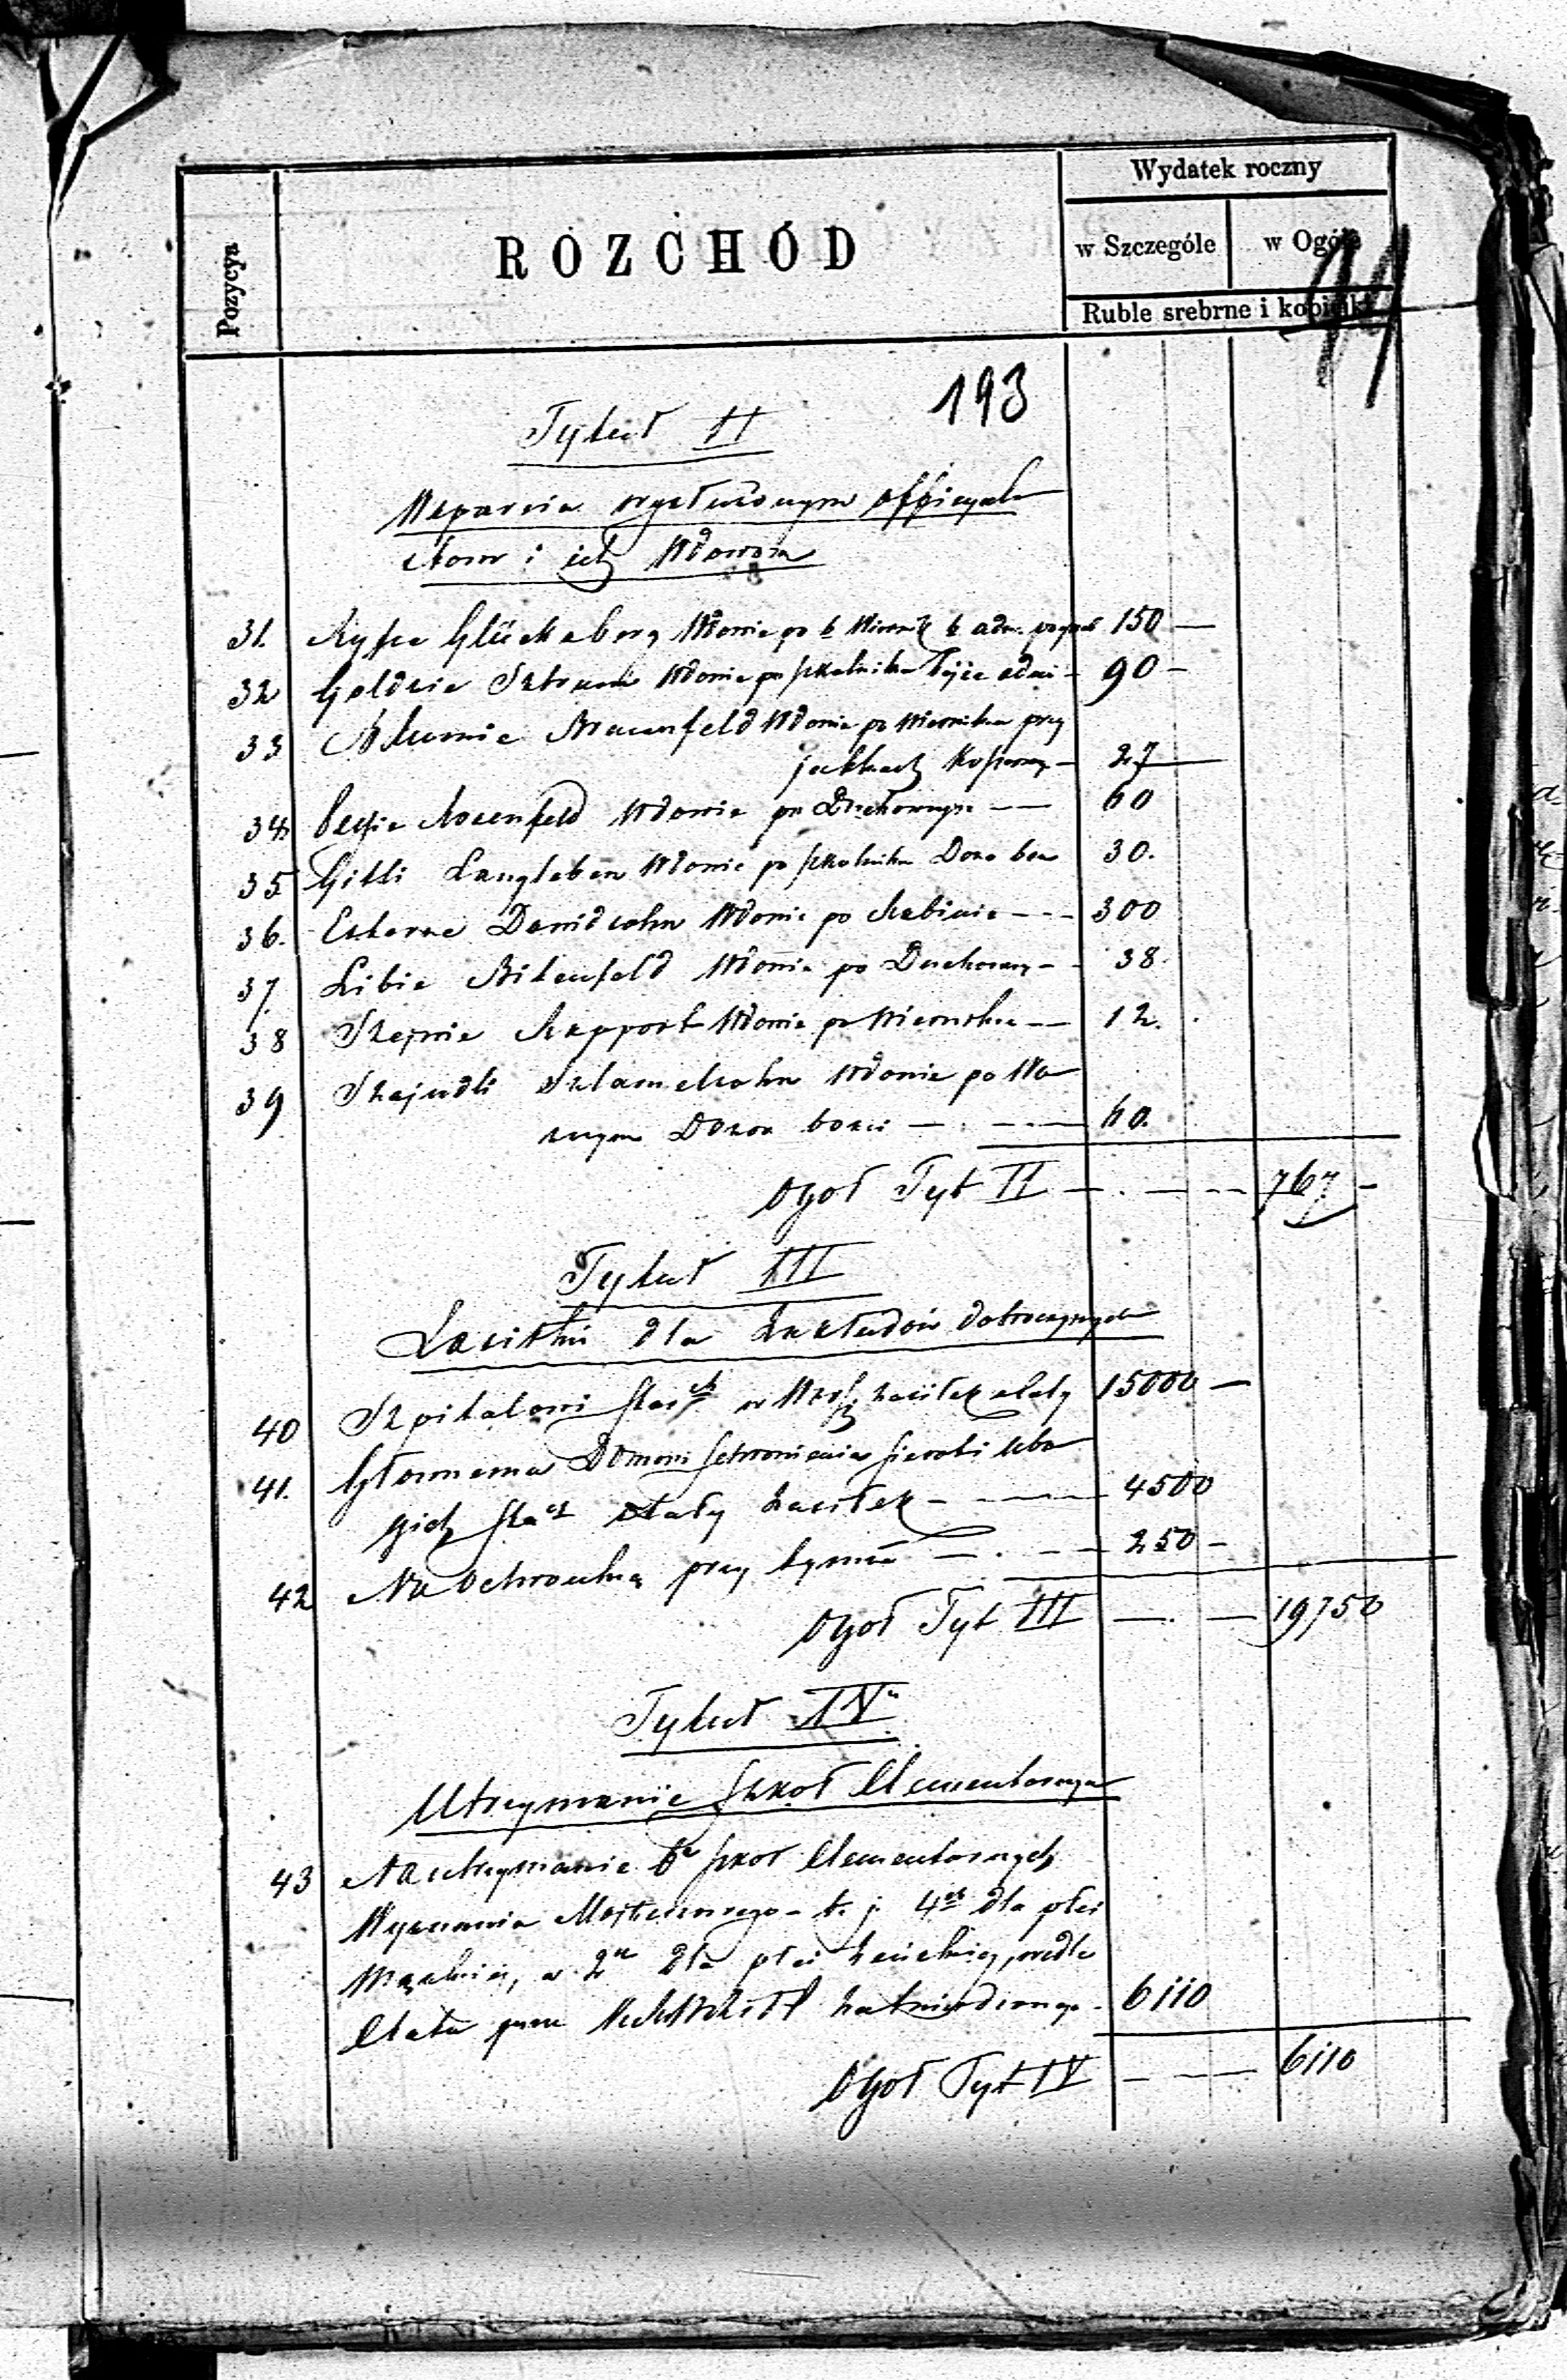 Wydatek roczny
Pozycya
ROZCHÓD
w Szczególe
w Ogóle
Ruble srebrne i kopiejki
193
Tytuł II
Wsparcia wysłużonym officyali
stom i ich Wdowom
31. Ryfce Glücksberg Wdowie po b 150 —
32 Goldzie Wdowie po szkolniku 90 —
33 Blumie Braunfeld Wdowie po Wierniku przy
jatkach Koszerny — 27 —
34 Rosenfeld Wdowie po Duchownym — — 60
35 Gitli Langleben Wdowie po szkolniku Dozo boz 30.
36. Esterze Dawidsohn Wdowie po Rabinie — - - 300
37. Libie Bitenfeld Wdowie po Duchowny - - 38.
38 Szejnie Rappport Wdowie po Wierniku — — 12.
39 Szajndli Szlamelsohn Wdowie po Wo
znym Dozor bozn — . — . — 60.
Ogół Tyt II — . — - - 767 —
Tytuł III
Zasiłki dla Zakładów dobroczynnych
40 Szpitalowi Starch w Warsz zasiłek stały 15000 —
41. Głównemu Domowi Schronienia sierot i ubo
gich Stach stały zasiłek - — — 4500
42 Na Ochronkę przy tymże — . — — 250 —
Ogół Tyt III — . — 19750
Tytuł IV
Utrzymanie szkół Elementarnych
43 Na utrzymanie 6 szkół Elementarnych
Wyznania Mojżeszowego — t. j. 4ch dla płci
męzkiej, a 2ch dla płci żeńskiej, wedle
Etatu przez zatwierdzonego - 6110
Ogół Tyt IV — - — 6110